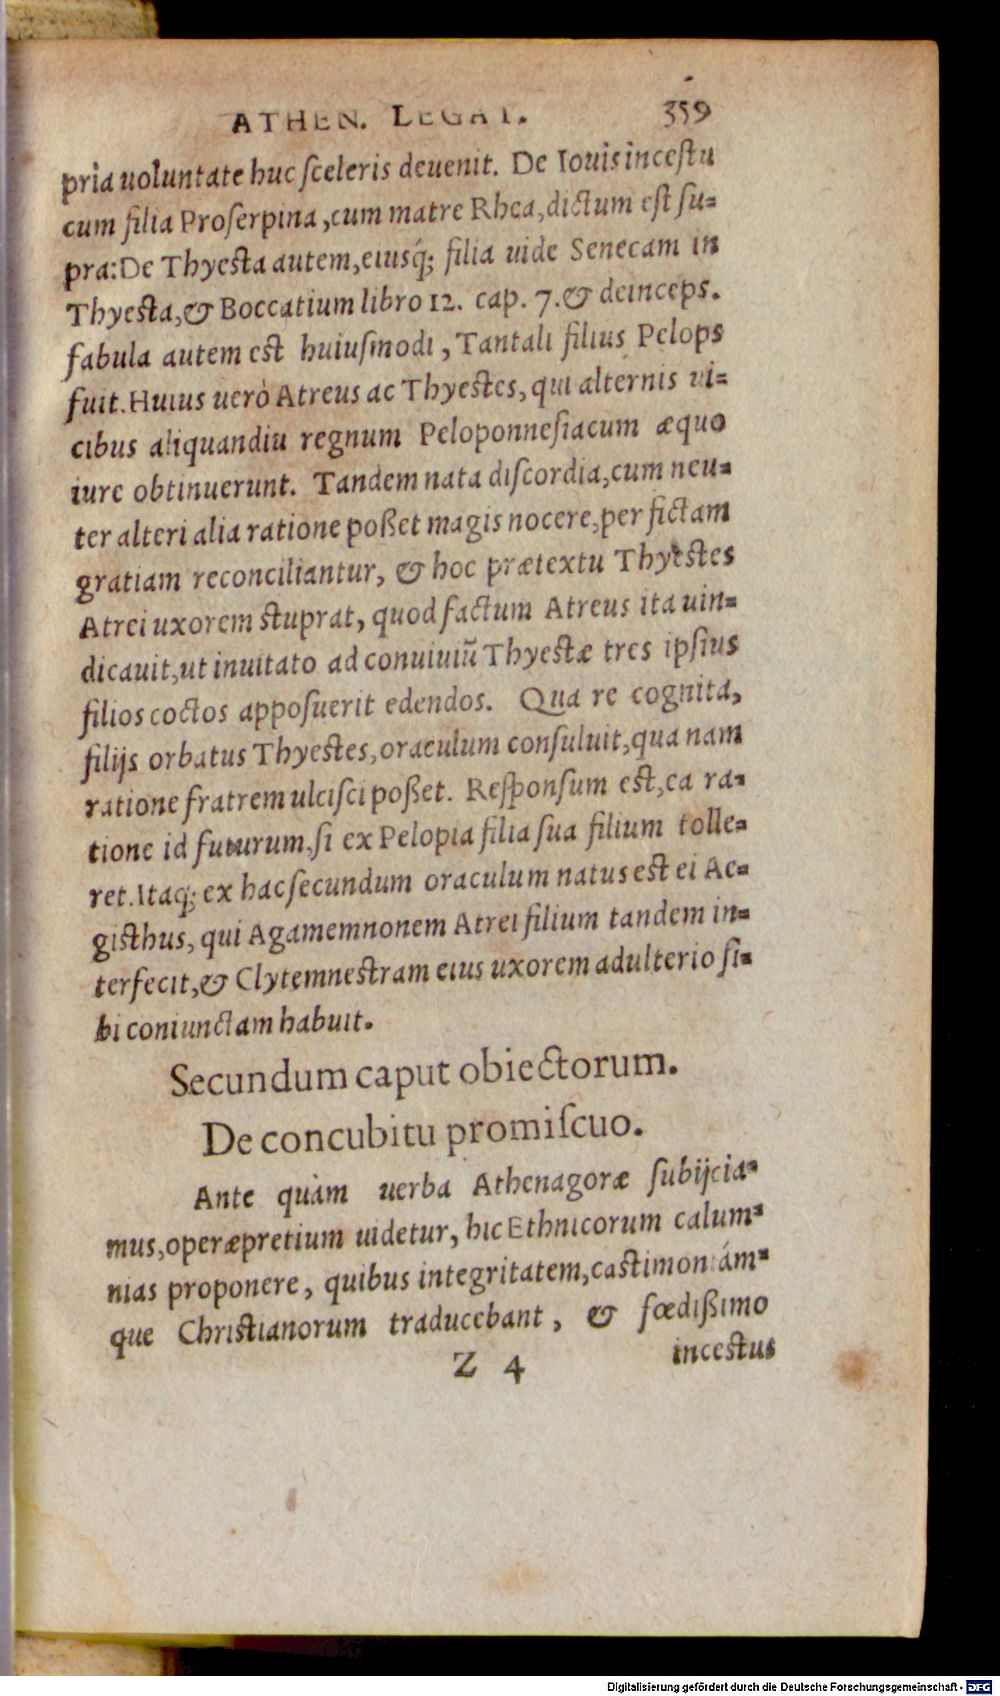 ATHEN. LEGAT. 359
pria uoluntate huc sceleris deuenit. De Iouis incestu
cum filia Proserpina, cum matre Rhea, dictum est su-
pra: De Thyesta autem, eiusq́; filia uide Senecam in
Thyesta, & Boccatium libro 12. cap. 7. & deinceps.
fabula autem est huiusmodi, Tantali filius Pelops
fuit. Huius uerò Atreus ac Thyestes, qui alternis ui-
cibus aliquandiu regnum Peloponnesiacum æquo
iure obtinuerunt. Tandem nata discordia, cum neu-
ter alteri alia ratione poßet magis nocere, per fictam
gratiam reconciliantur, & hoc prætextu Thyestes
Atrei uxorem stuprat, quod factum Atreus ita uin-
dicauit, ut inuitato ad conuiuiũ Thyestæ tres ipsius
filios coctos apposuerit edendos. Qua re cognita,
filijs orbatus Thyestes, oraculum consuluit, qua nam
ratione fratrem ulcisci poßet. Responsum est, ea ra-
tione id futurum, si ex Pelopia filia sua filium tolle-
ret. Itaq; ex hac secundum oraculum natus est ei Ae-
gisthus, qui Agamemnonem Atrei filium tandem in-
terfecit, & Clytemnestram eius uxorem adulterio si-
bi coniunctam habuit.
Secundum caput obiectorum.
De concubitu promiscuo.
Ante quàm uerba Athenagoræ subijcia-
mus, operæpretium uidetur, hic Ethnicorum calum-
nias proponere, quibus integritatem, castimoniám-
que Christianorum traducebant, & fœdißimo
Z 4 incestus
Digitalisierung gefördert durch die Deutsche Forschungsgemeinschaft - DFG